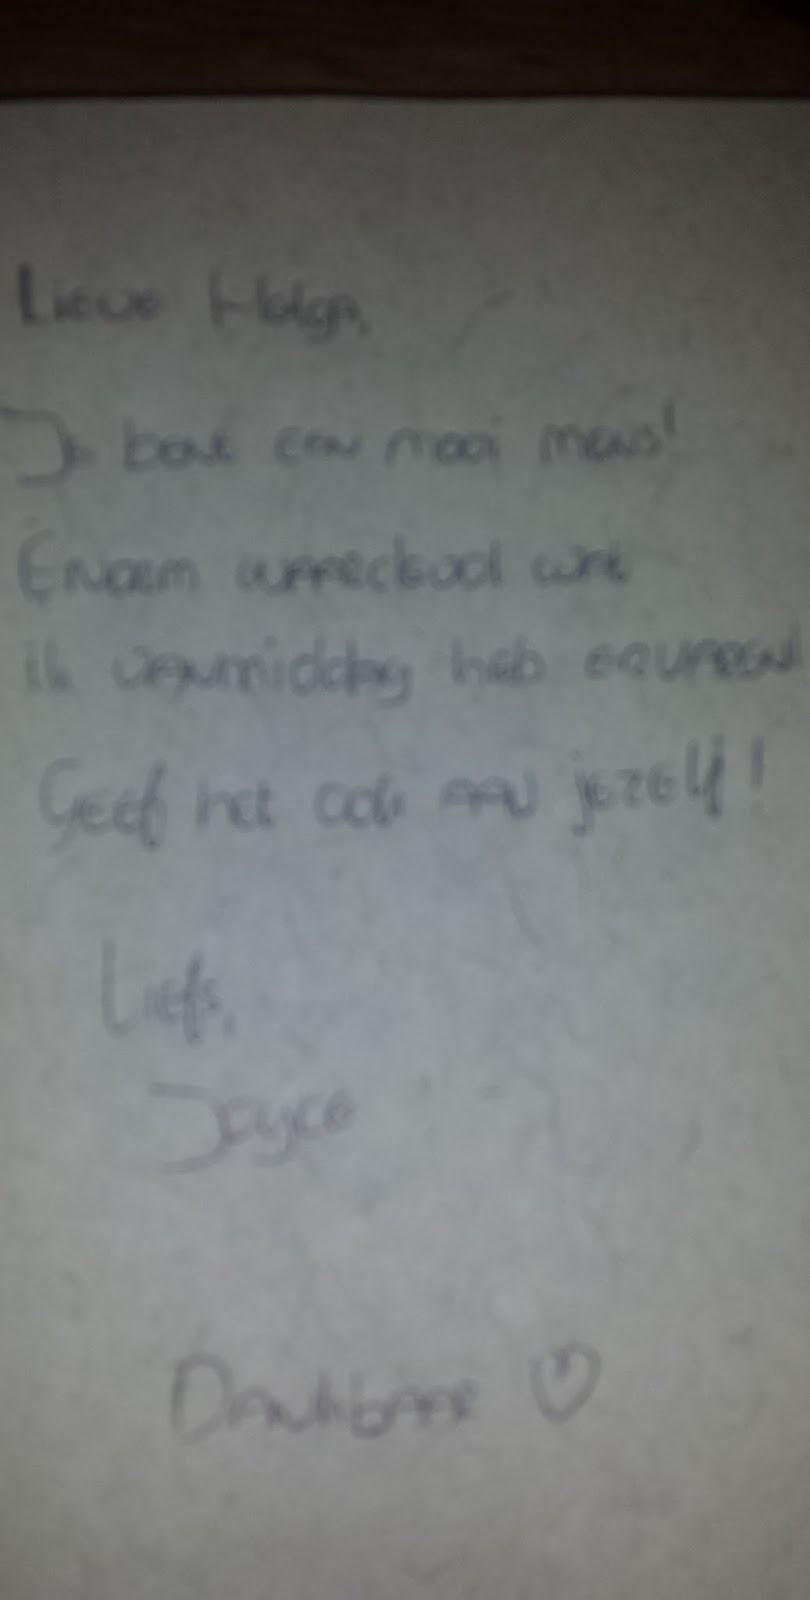 Lieve Helga,
Je bent een mooi mens!
Enorm waardevol wat
ik vanmiddag heb ervaren!
Geef het ook aan jezelf!
Liefs,
Joyce
Dankbaar ♡